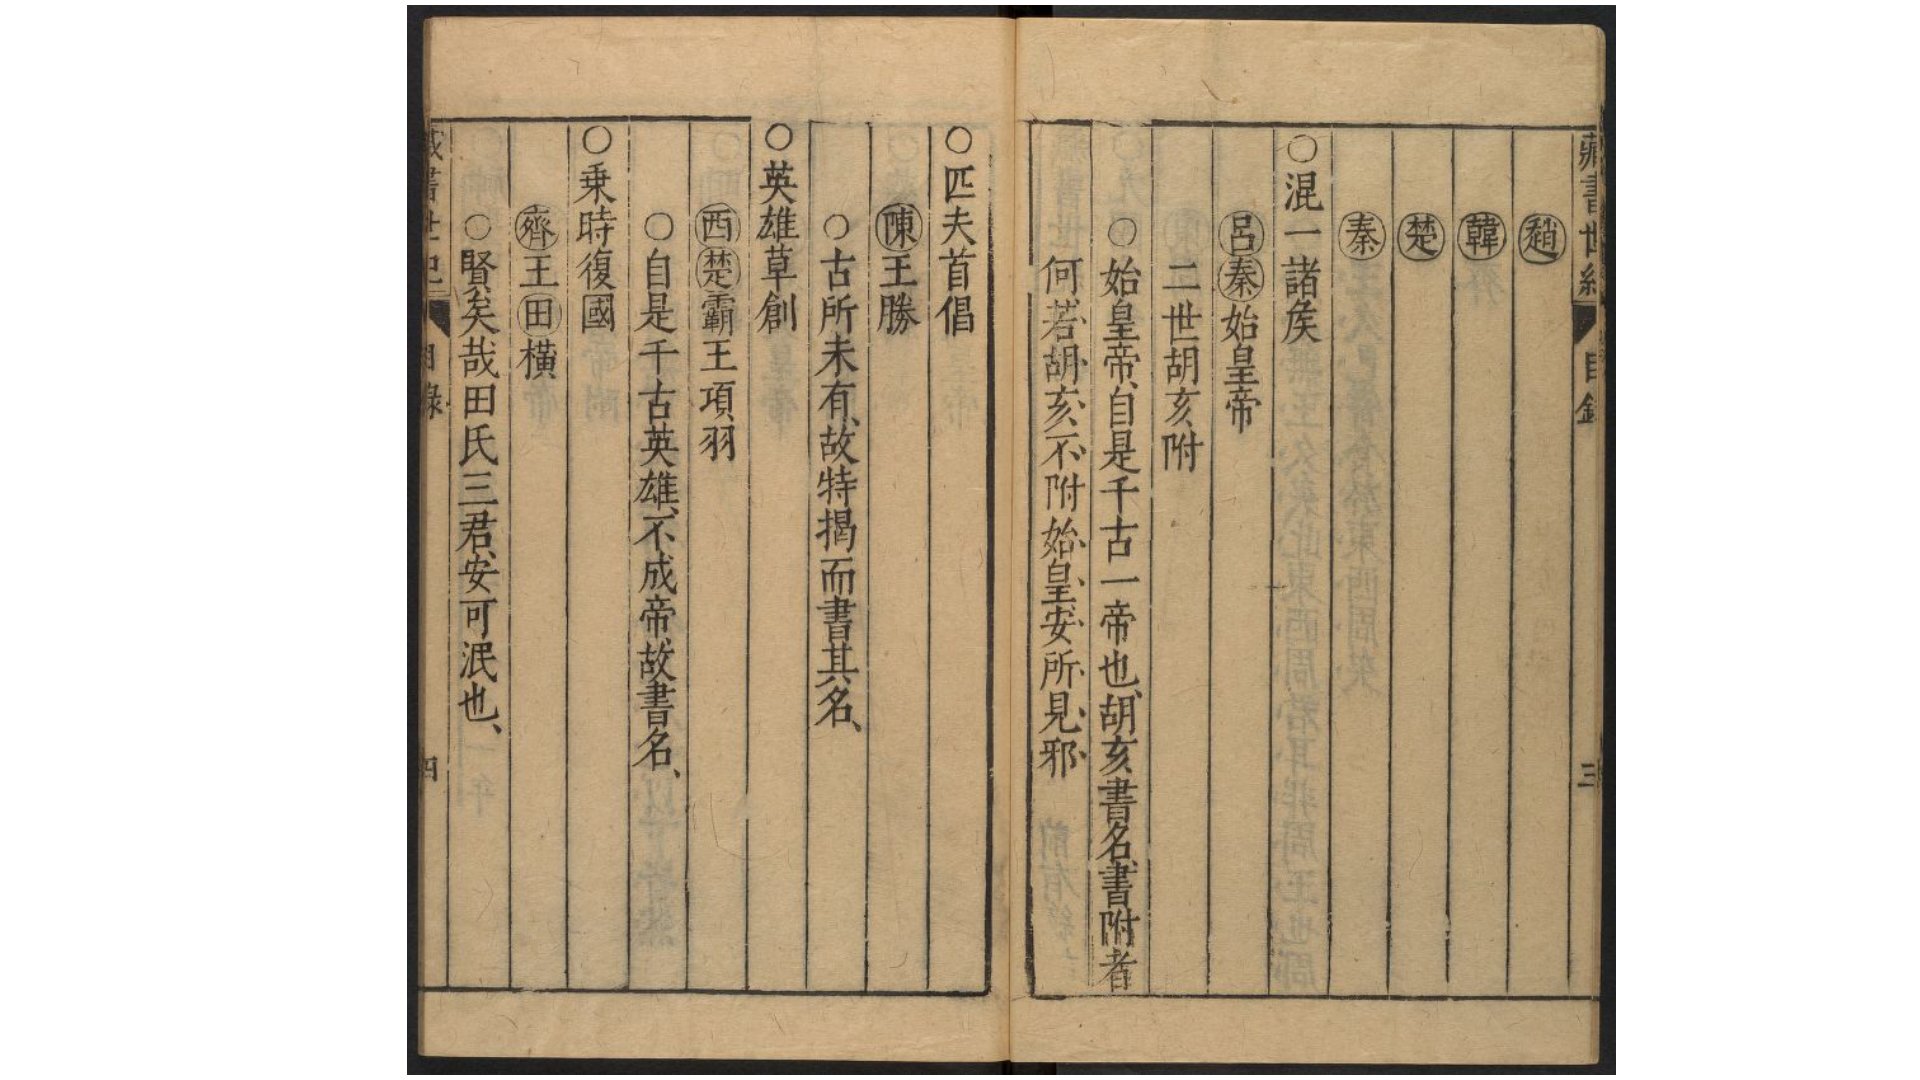 藏書世紀 目錄 三
趙
韓
楚
秦
○混一諸矦
呂秦始皇帝
二世胡亥附
○始皇帝、自是千古一帝也、胡亥書名、書附者
何若胡亥不附始皇、安所見邪
○匹夫首倡
陳王勝
○古所未有、故特揭而書其名、
○英雄草創
西楚霸王項羽
○自是千古英雄、不成帝、故書名、
○乗時復國
齊王田橫
○賢矣哉田氏三君、安可泯也、
藏書世紀 目錄 四